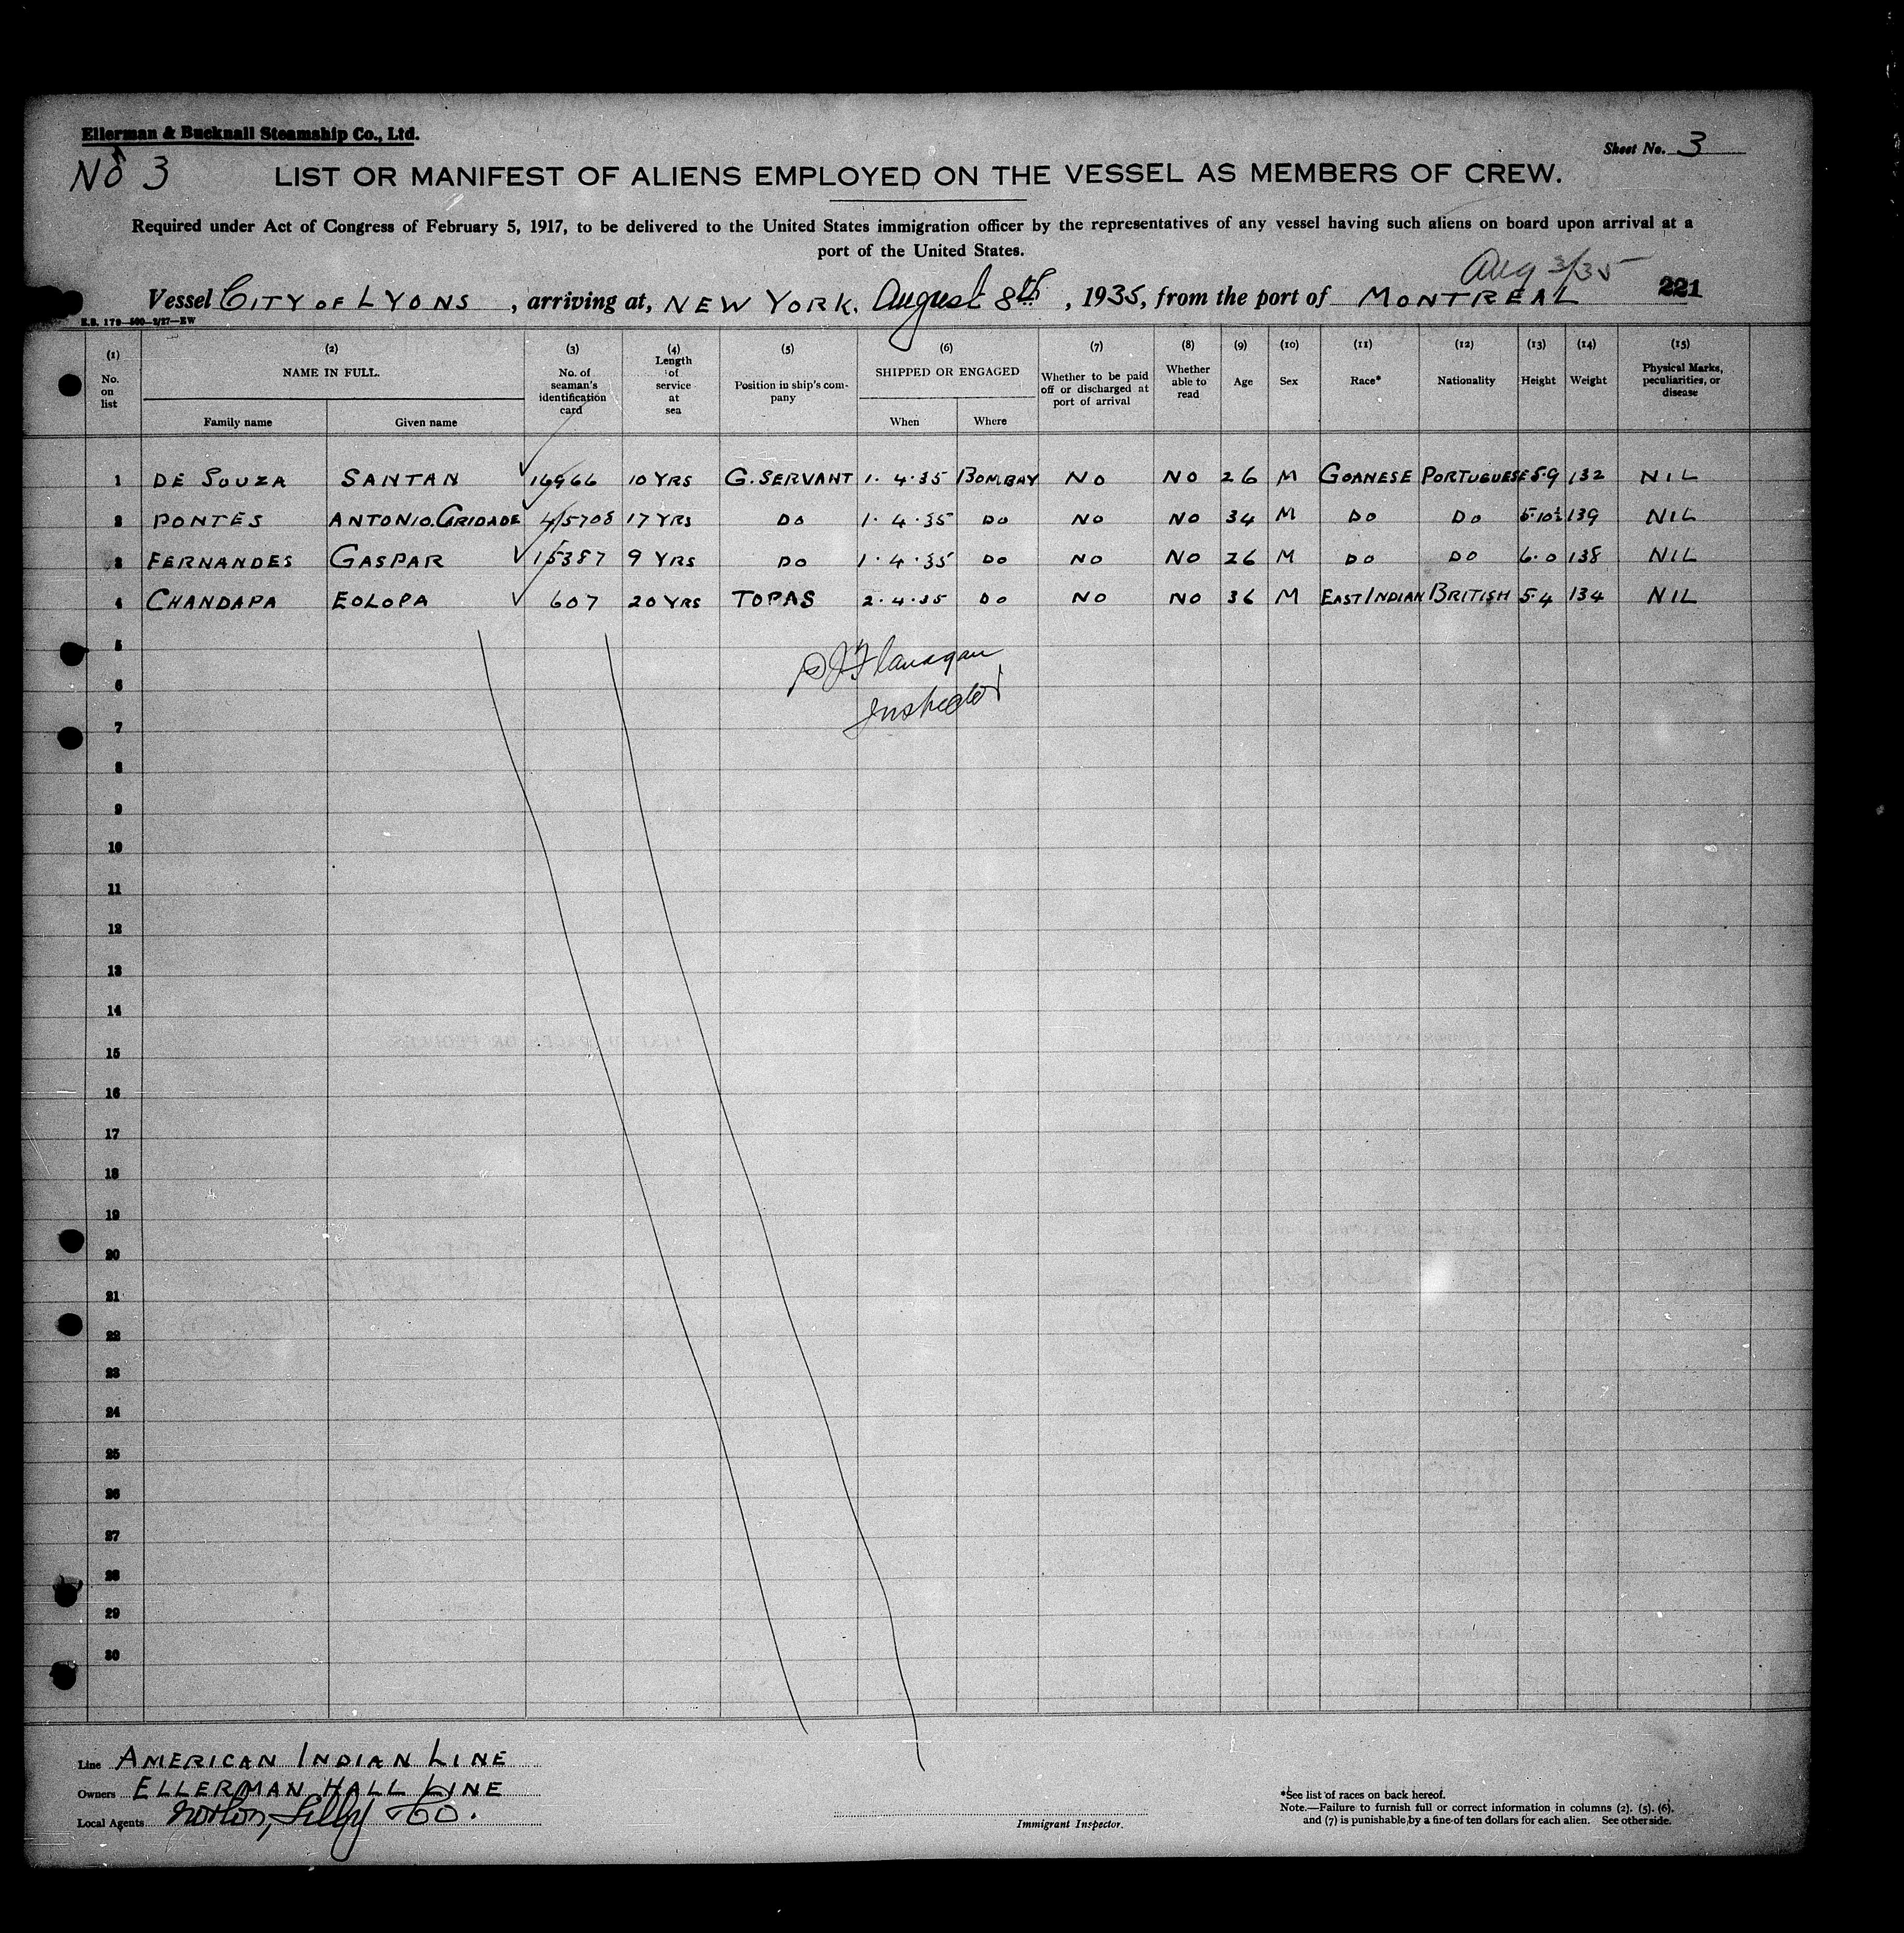 Ellerman & Bucknall Steamship Co., Ltd.
Sheet No. 3
No 3
LIST OR MANIFEST OF ALIENS EMPLOYED ON THE VESSEL AS MEMBERS OF CREW.
Required under Act of Congress of February 5, 1917, to be delivered to the United States immigration officer by the representatives of any vessel having such aliens on board upon arrival at a
port of the United States.
Aug 3/35
Vessel CITY OF LYONS, arriving at, NEW YORK. August 8th, 1935, from the port of MONTREAL 221
E.B. 179—500—2/27—EW
(1) (2) (3) (4) (5) (6) (7) (8) (9) (10) (11) (12) (13) (14) (15)
No. on list NAME IN FULL. Family name Given name No. of seaman's identification card Length of service at sea Position in ship's company SHIPPED OR ENGAGED When Where Whether to be paid off or discharged at port of arrival Whether able to read Age Sex Race* Nationality Height Weight Physical Marks, peculiarities, or disease
1 DE SOUZA SANTAN 16966 10 YRS G. SERVANT 1.4.35 BOMBAY NO NO 26 M GOANESE PORTUGUESE 5.9 132 NIL
2 PONTES ANTONIO. 4/5708 17 YRS DO 1.4.35 DO NO NO 34 M DO DO 5.10½ 139 NIL
3 FERNANDES GASPAR 15387 9 YRS DO 1.4.35 DO NO NO 26 M DO DO 6.0 138 NIL
4 CHANDAPA EOLOPA 607 20 YRS TOPAS 2.4.35 DO NO NO 36 M EAST INDIAN BRITISH 5.4 134 NIL
5
Flanagan
6
Inspector
7
8
9
10
11
12
13
14
15
16
17
18
19
20
21
22
23
24
25
26
27
28
29
30
Line AMERICAN INDIAN LINE
Owners ELLERMAN HALL LINE
Local Agents Norton, Lilly & Co.
Immigrant Inspector.
*See list of races on back hereof.
Note.—Failure to furnish full or correct information in columns (2). (5). (6).
and (7) is punishable by a fine of ten dollars for each alien. See other side.